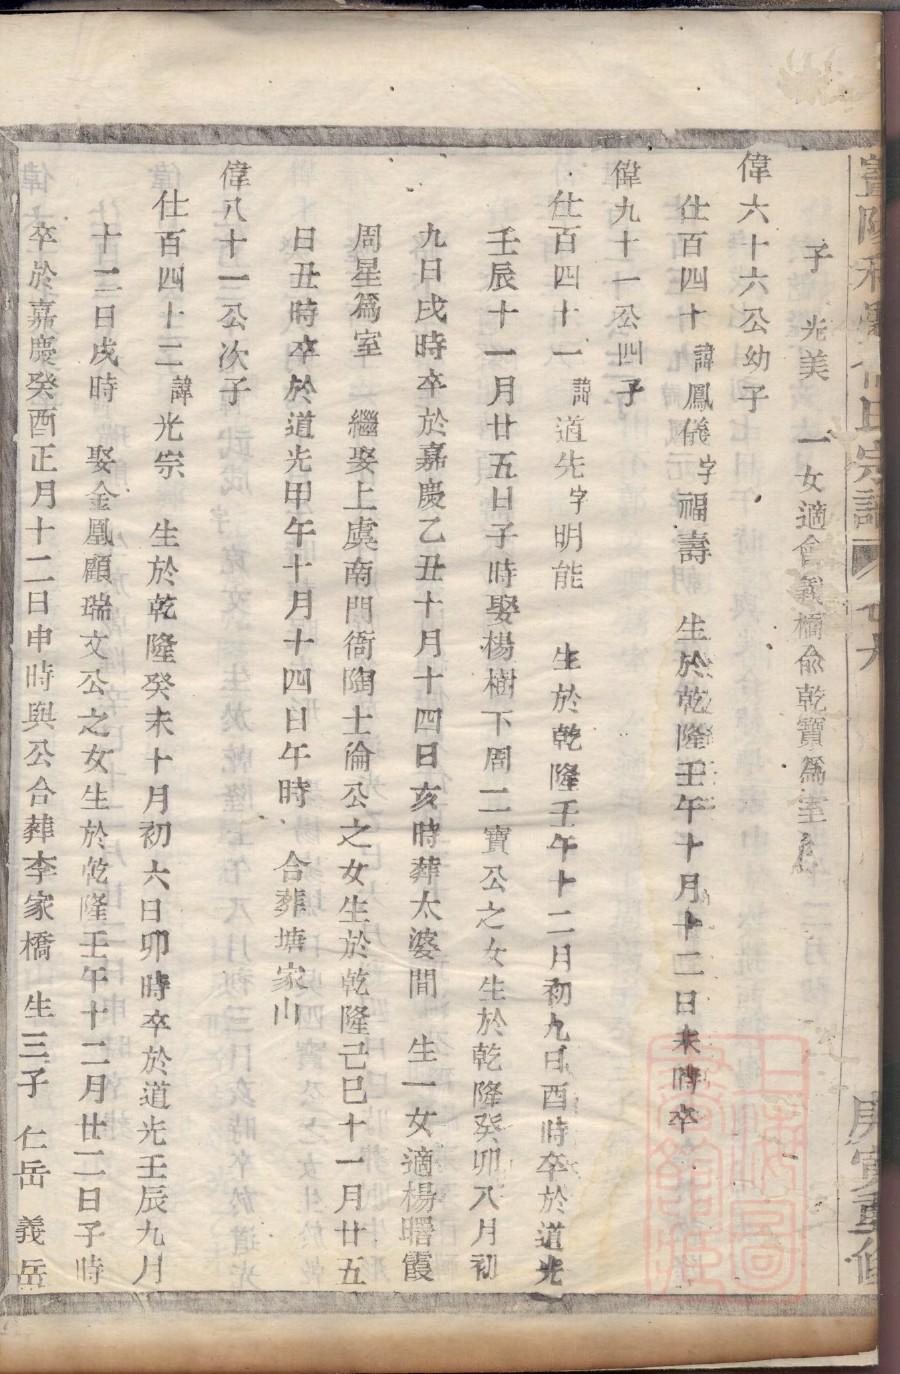 氏宗譜
庚寅重修
子 光美 一女適會義橋俞乾寶爲室
偉六十六公幼子
仕百四十 諱鳳儀字福壽 生於乾隆壬午十月十二日未時卒
偉九十一公四子
仕百四十一 諱道先字明能 生於乾隆壬午十二月初九日酉時卒於道光
壬辰十一月廿五日子時娶楊樹下周二寶公之女生於乾隆癸卯八月初
九日戌時卒於嘉慶乙丑十月十四日亥時葬太婆間 生一女適楊曙霞
周星爲室 繼娶上虞南門衙陶士倫公之女生於乾隆己巳十一月廿五
日丑時卒於道光甲午十月十四日午時 合葬塘家山
偉八十一公次子
仕百四十二 諱光宗 生於乾隆癸未十月初六日卯時卒於道光壬辰九月
十二日戌時 娶金凰顧瑞文公之女生於乾隆壬午十二月廿二日子時
卒於嘉慶癸酉正月十二日申時與公合葬李家橋 生三子 仁岳 義岳